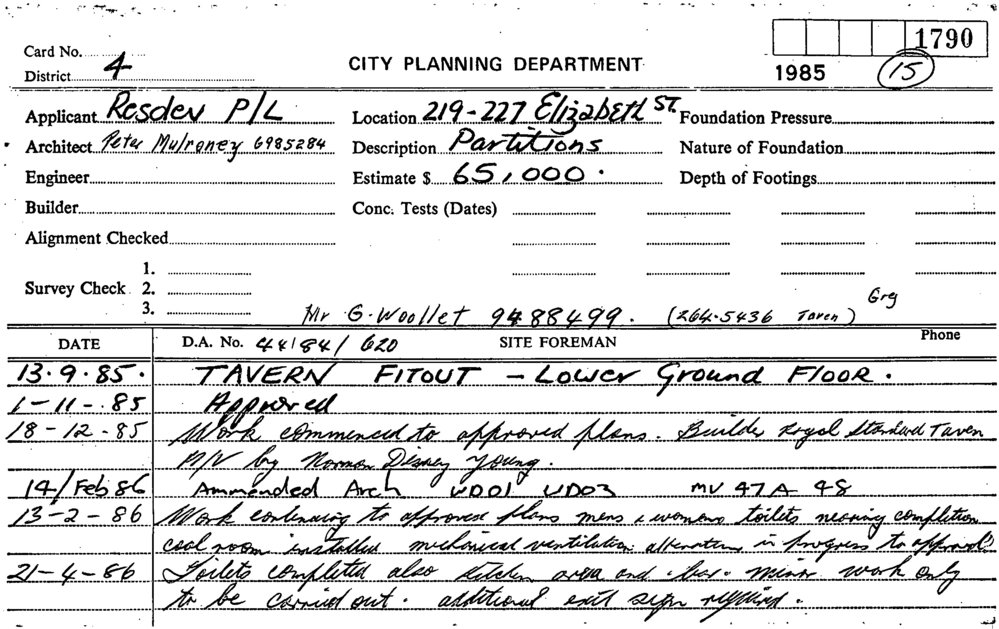 1790
Card No.
District 4
CITY PLANNING DEPARTMENT
1985 15
Applicant Resdev P/L
Location 219-227 Elizabeth ST.
Foundation Pressure
Architect Peter Mulroney 6985284
Description Partitions
Nature of Foundation
Engineer
Estimate $ 65,000.
Depth of Footings
Builder
Conc. Tests (Dates)
Alignment Checked
1.
Survey Check 2.
3.
Greg
Mr G. Woollet 9488499. (264.5436 Taven)
DATE D.A. No. 44 84/620 SITE FOREMAN Phone
13.9.85. TAVERN FITOUT - Lower Ground Floor.
1-11-85 Approved
18-12-85 Work commenced to approved plans. Builder Royal Standard Taven
M/V by Norman Disney Young.
14/Feb 86 Ammended Arch WD01 WD03 MV 47A 48
13-2-86 Work continuing to approved plans mens & womens toilets nearing completion
cool room installed mechanical ventilation alteration in progress to approval
21-4-86 Toilets completed also kitchen area and bar. minor work only
to be carried out. additional exit sign required.